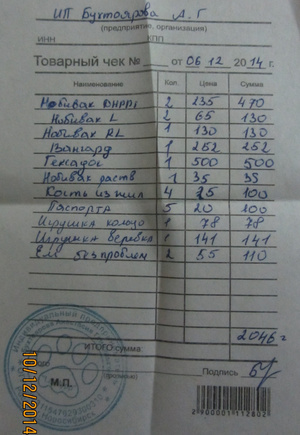 ИП Бухтоярова А.Г
(предприятие, организация)
ИНН КПП
Товарный чек № от 06 12 2014 г.
Наименование Кол. Цена Сумма
Нобивак DHPPi 2 235 470
Нобивак L 2 65 130
Нобивак RL 1 130 130
Вангард 1 252 252
Гексадог 1 500 500
Нобивак раств 1 35 35
Кость из жил 4 25 100
Паспорта 5 20 100
Игрушка кольцо 1 78 78
Игрушка веревка 1 141 141
Ем без проблем 2 55 110
2046 г
ИТОГО сумма:
Подпись
М.П.
2900001112802
10/12/2014